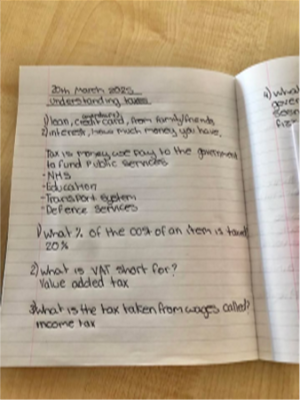 20th March 2025
Understanding taxes
overdraft
1) loan, credit card, from family/friends
2) interest, how much money you have,
Tax is money we pay to the government
to fund Public services
- NHS
- Education
- Transport system
- Defence services
1) What % of the cost of an item is taxed?
20%
2) What is VAT short for?
Value added tax
3) What is the tax taken from wages called?
income tax
4) What
gover